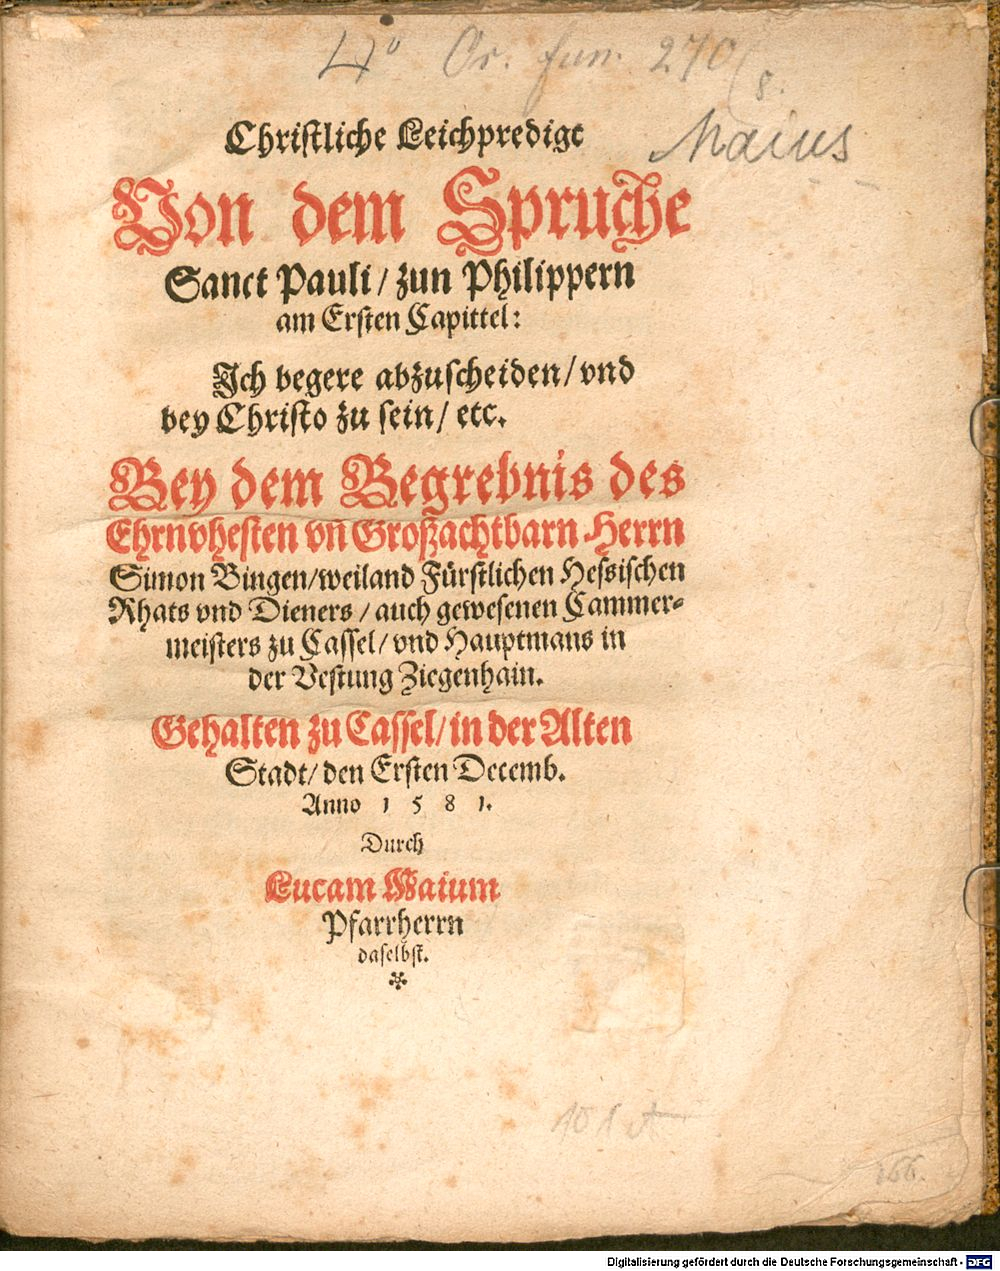 4° Or. fun. 270/8.
Maius
Christliche Leichpredigt
Von dem Spruche
Sanct Pauli / zun Philippern
am Ersten Capittel:
Ich begere abzuscheiden / vnd
bey Christo zu sein / etc.
Bey dem Begrebnis des
Ehrnvhesten vn̄ Großachtbarn Herrn
Simon Bingen / weiland Fürstlichen Hessischen
Rhats vnd Dieners / auch gewesenen Cammer-
meisters zu Cassel / vnd Hauptmans in
der Vestung Ziegenhain.
Gehalten zu Cassel / in der Alten
Stadt / den Ersten Decemb.
Anno 1 5 8 1.
Durch
Lucam Maium
Pfarrherrn
daselbst.
166.
Digitalisierung gefördert durch die Deutsche Forschungsgemeinschaft - DFG